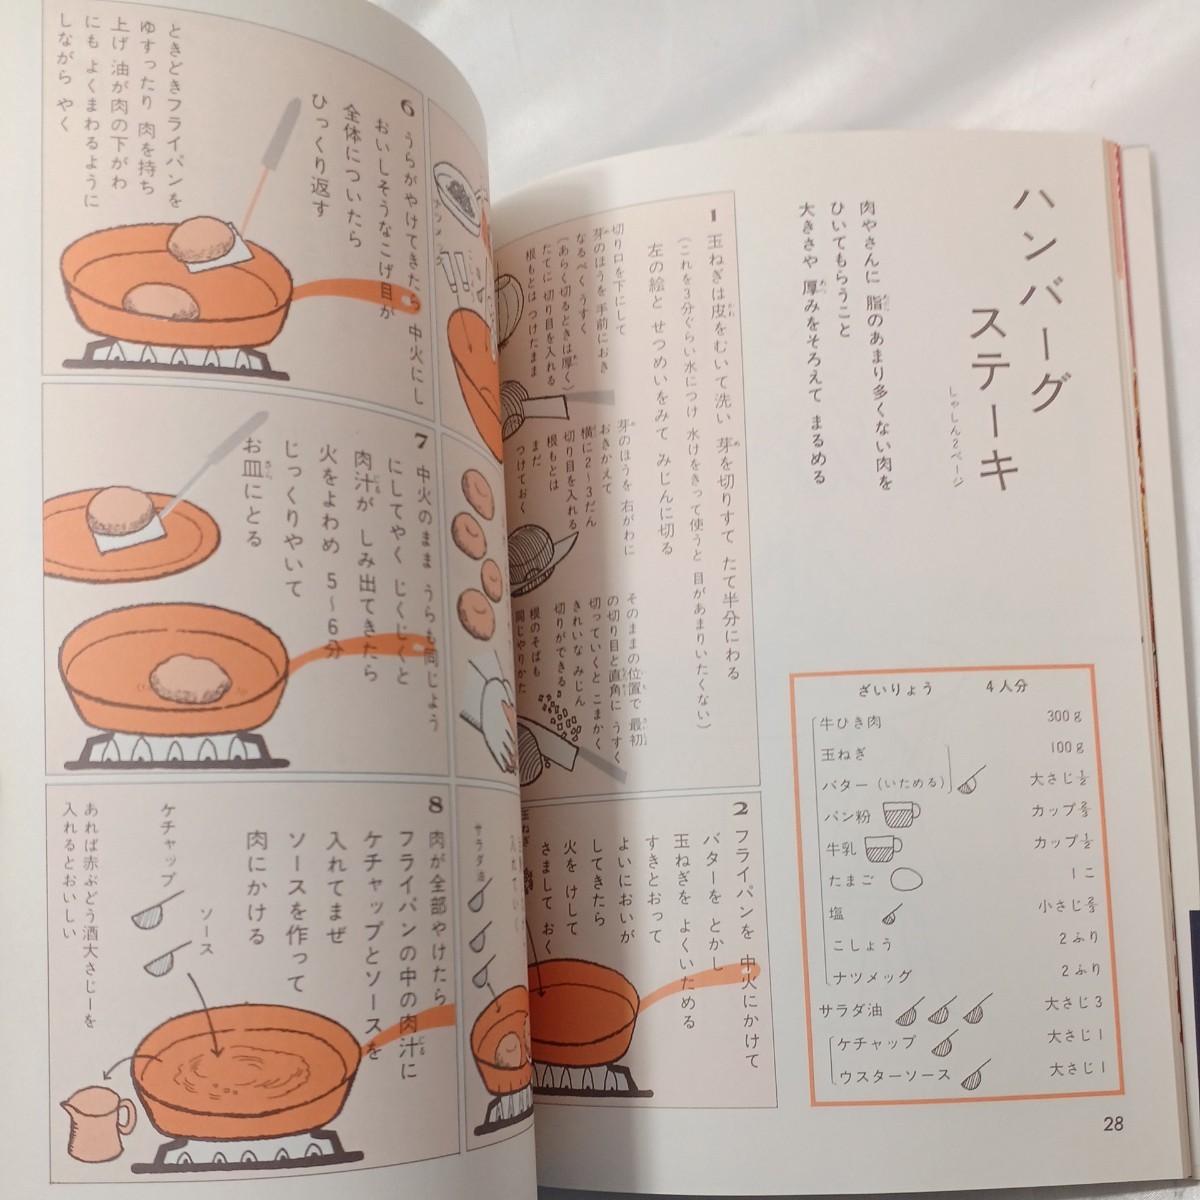 ハンバーグ
ステーキ
しゃしん2ページ
肉やさんに 脂のあまり多くない肉を
ひいてもらうこと
大きさや 厚みをそろえて まるめる
ざいりょう 4人分
牛ひき肉 300g
玉ねぎ 100g
バター（いためる） 大さじ½
パン粉 カップ⅔
牛乳 カップ½
たまご 1こ
塩 小さじ⅔
こしょう 2ふり
ナツメッグ 2ふり
サラダ油 大さじ3
ケチャップ 大さじ1
ウスターソース 大さじ1
28
1 玉ねぎは皮をむいて洗い 芽を切りすて たて半分にわる
（これを3分ぐらい水につけ 水けをきって使うと 目があまりいたくない）
左の絵と せつめいをみて みじんに切る
切り口を下にして
芽のほうを 手前におき
なるべく うすく
（あらく切るときは厚く）
たてに 切り目を入れる
根もとは つけたまま
芽のほうを 右がわに
おきかえて
横に2〜3だん
切り目を入れる
根もとは
まだ
つけておく
そのままの位置で 最初
の切り目と直角に うすく
切っていくと こまかく
きれいな みじん
切りができる
根のそばも
同じやりかた
2 フライパンを 中火にかけて
バターを とかし
玉ねぎを よくいためる
すきとおって
よいにおいが
してきたら
火を けして
さまして おく
玉ねぎ
サラダ油
6 うらがやけてきたら 中火にし
おいしそうなこげ目が
全体についたら
ひっくり返す
ときどきフライパンを
ゆすったり 肉を持ち
上げ 油が肉の下がわ
にも よくまわるように
しながら やく
7 中火のまま うらも同じよう
にしてやく じくじくと
肉汁が しみ出てきたら
火をよわめ 5〜6分
じっくりやいて
お皿にとる
8 肉が全部やけたら
フライパンの中の肉汁に
ケチャップとソースを
入れてまぜ
ソースを作って
肉にかける
ケチャップ
ソース
あれば赤ぶどう酒大さじ一を
入れるとおいしい